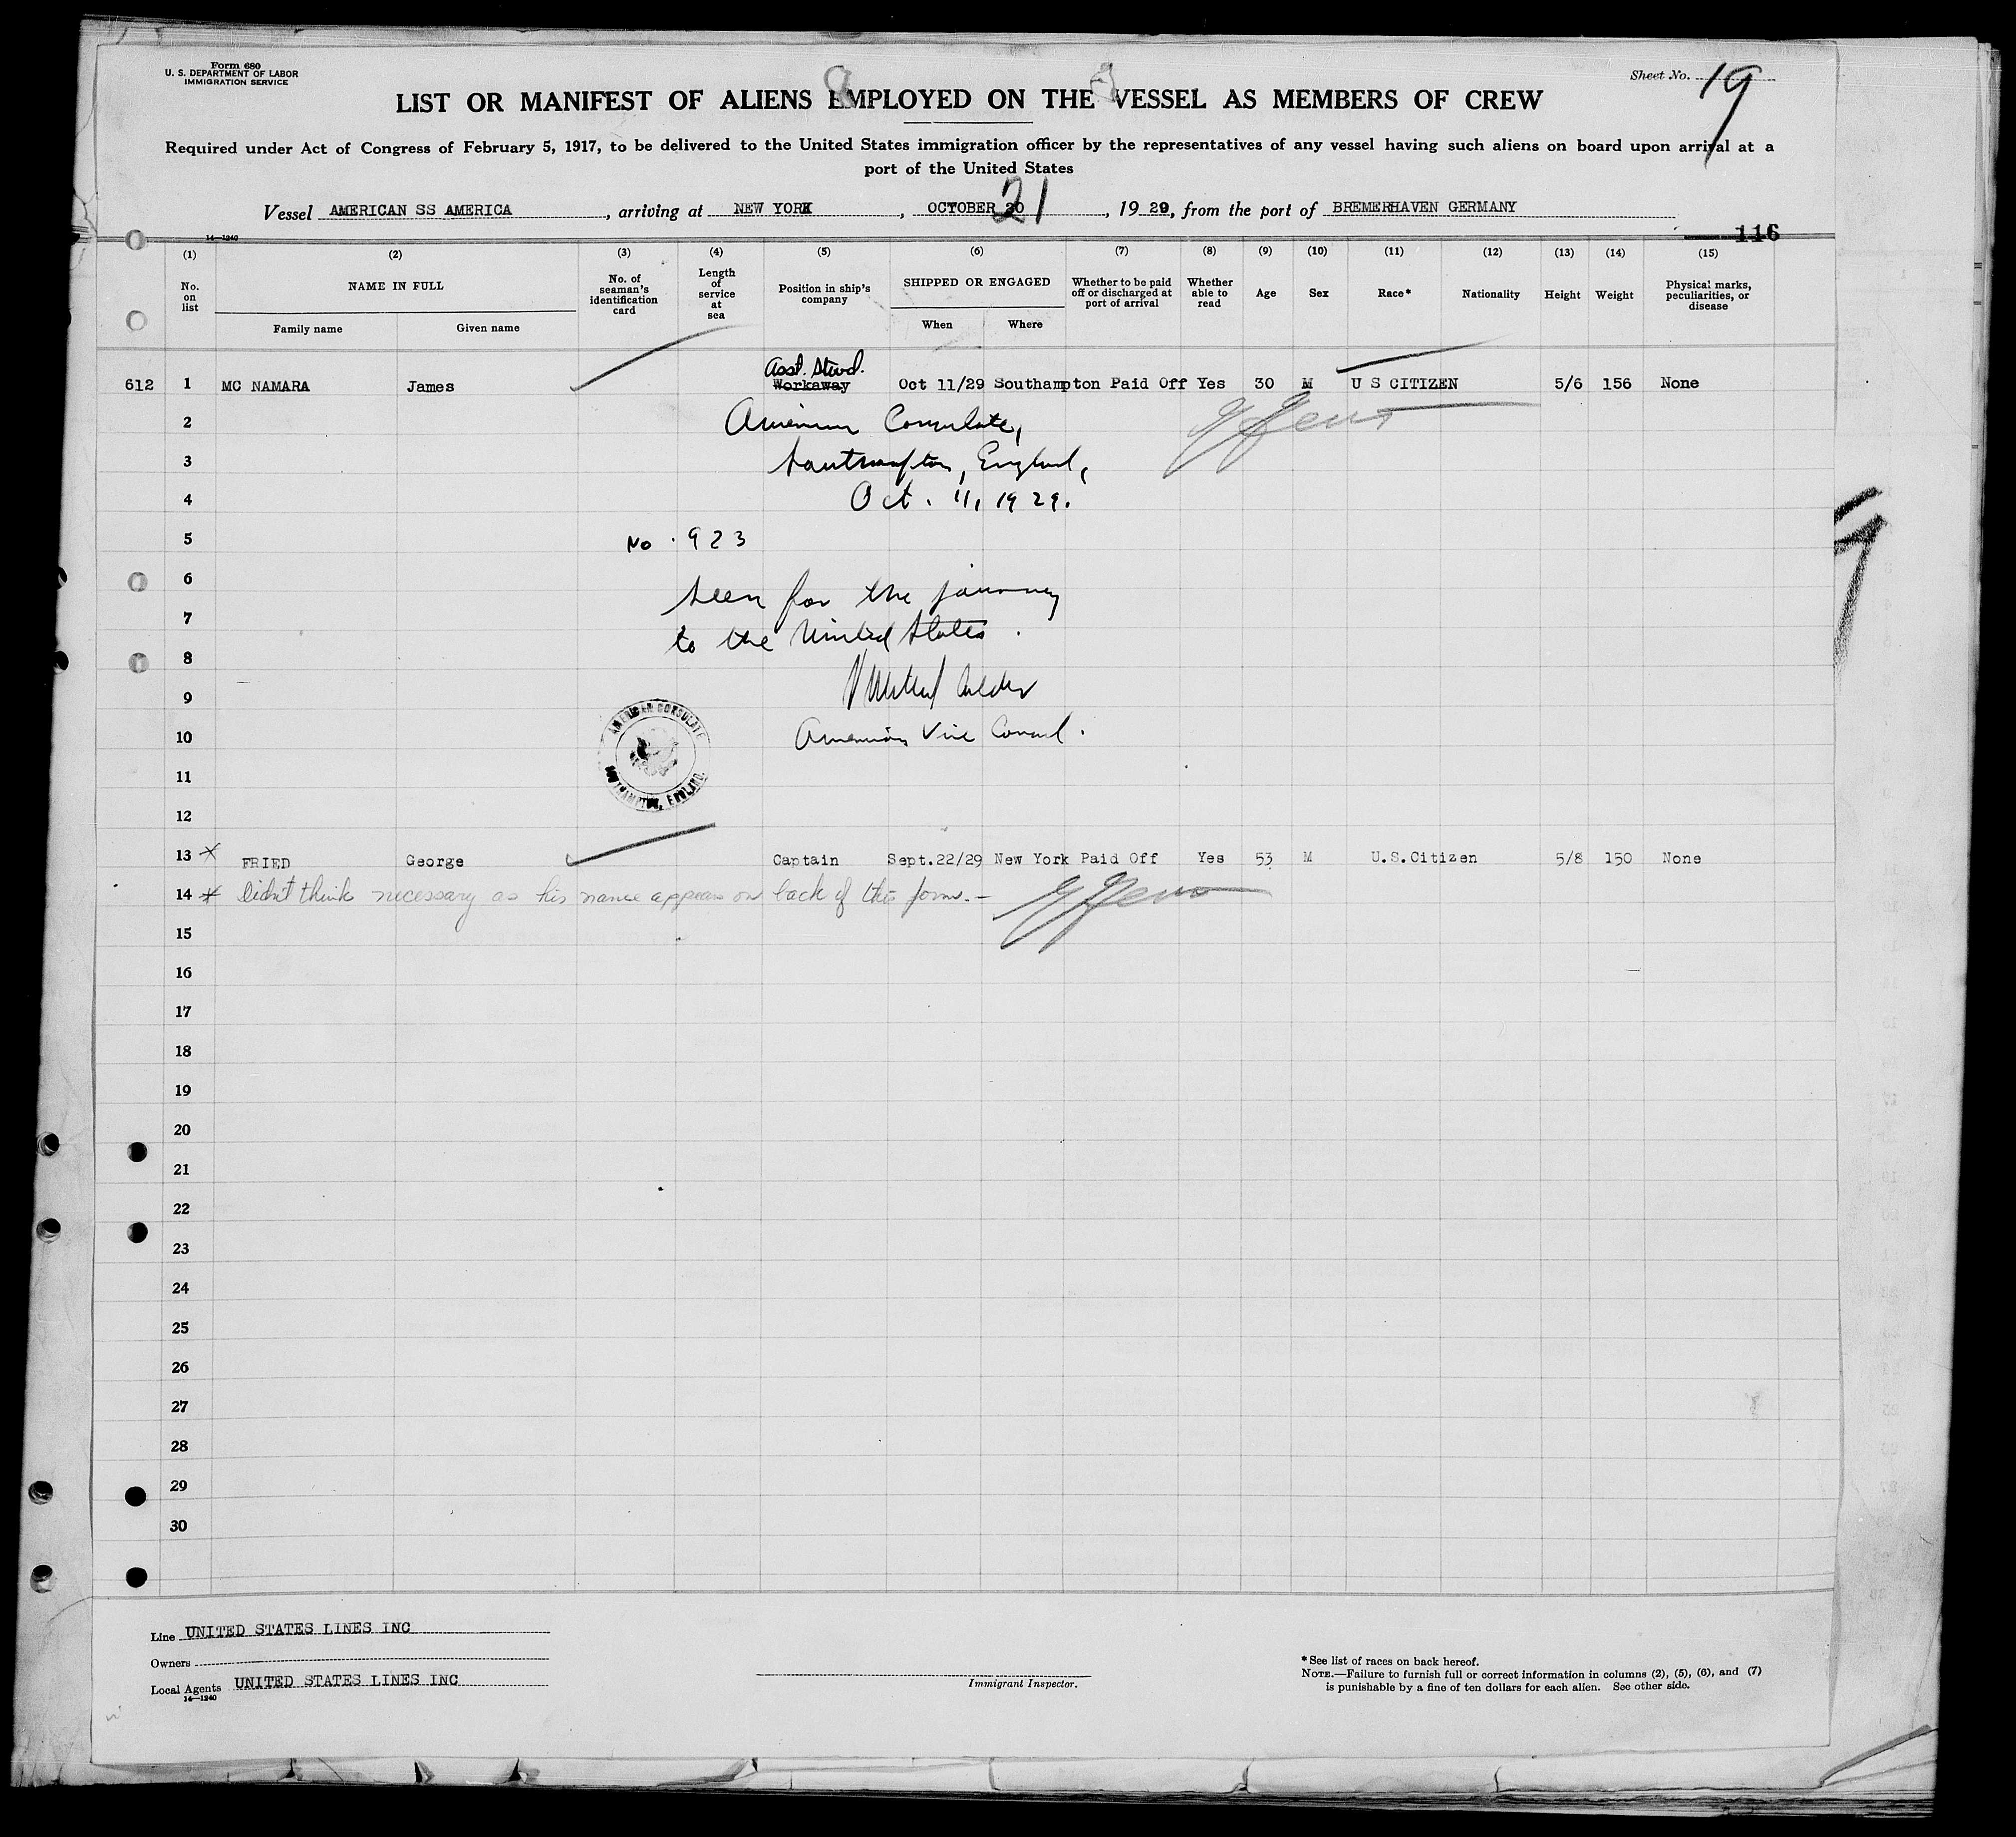 Form 680
U. S. DEPARTMENT OF LABOR
IMMIGRATION SERVICE
Sheet No. 19
LIST OR MANIFEST OF ALIENS EMPLOYED ON THE VESSEL AS MEMBERS OF CREW
Required under Act of Congress of February 5, 1917, to be delivered to the United States immigration officer by the representatives of any vessel having such aliens on board upon arrival at a
port of the United States
Vessel AMERICAN SS AMERICA, arriving at NEW YORK, OCTOBER 21, 1929, from the port of BREMERHAVEN GERMANY
116
14—1240
(1) (2) (3) (4) (5) (6) (7) (8) (9) (10) (11) (12) (13) (14) (15)
No. on list NAME IN FULL No. of seaman's identification card Length of service at sea Position in ship's company SHIPPED OR ENGAGED Whether to be paid off or discharged at port of arrival Whether able to read Age Sex Race* Nationality Height Weight Physical marks, peculiarities, or disease
Family name Given name When Where
Asst. Stwd.
612 1 MC NAMARA James Workaway Oct 11/29 Southampton Paid Off Yes 30 M U S CITIZEN 5/6 156 None
2 American Consulate,
3 Southampton, England,
4 Oct. 11, 1929.
5 No. 923
6 Seen for the journey
7 to the United States.
8
9
10 American Vice Consul.
AMERICAN CONSULATE
SOUTHAMPTON, ENGLAND.
11
12
13 FRIED George Captain Sept.22/29 New York Paid Off Yes 53 M U.S.Citizen 5/8 150 None
14 * Didn't think necessary as his name appears on back of this form.—
15
16
17
18
19
20
21
22
23
24
25
26
27
28
29
30
Line UNITED STATES LINES INC
Owners
Local Agents UNITED STATES LINES INC
14—1240
Immigrant Inspector.
* See list of races on back hereof.
NOTE.—Failure to furnish full or correct information in columns (2), (5), (6), and (7)
is punishable by a fine of ten dollars for each alien. See other side.